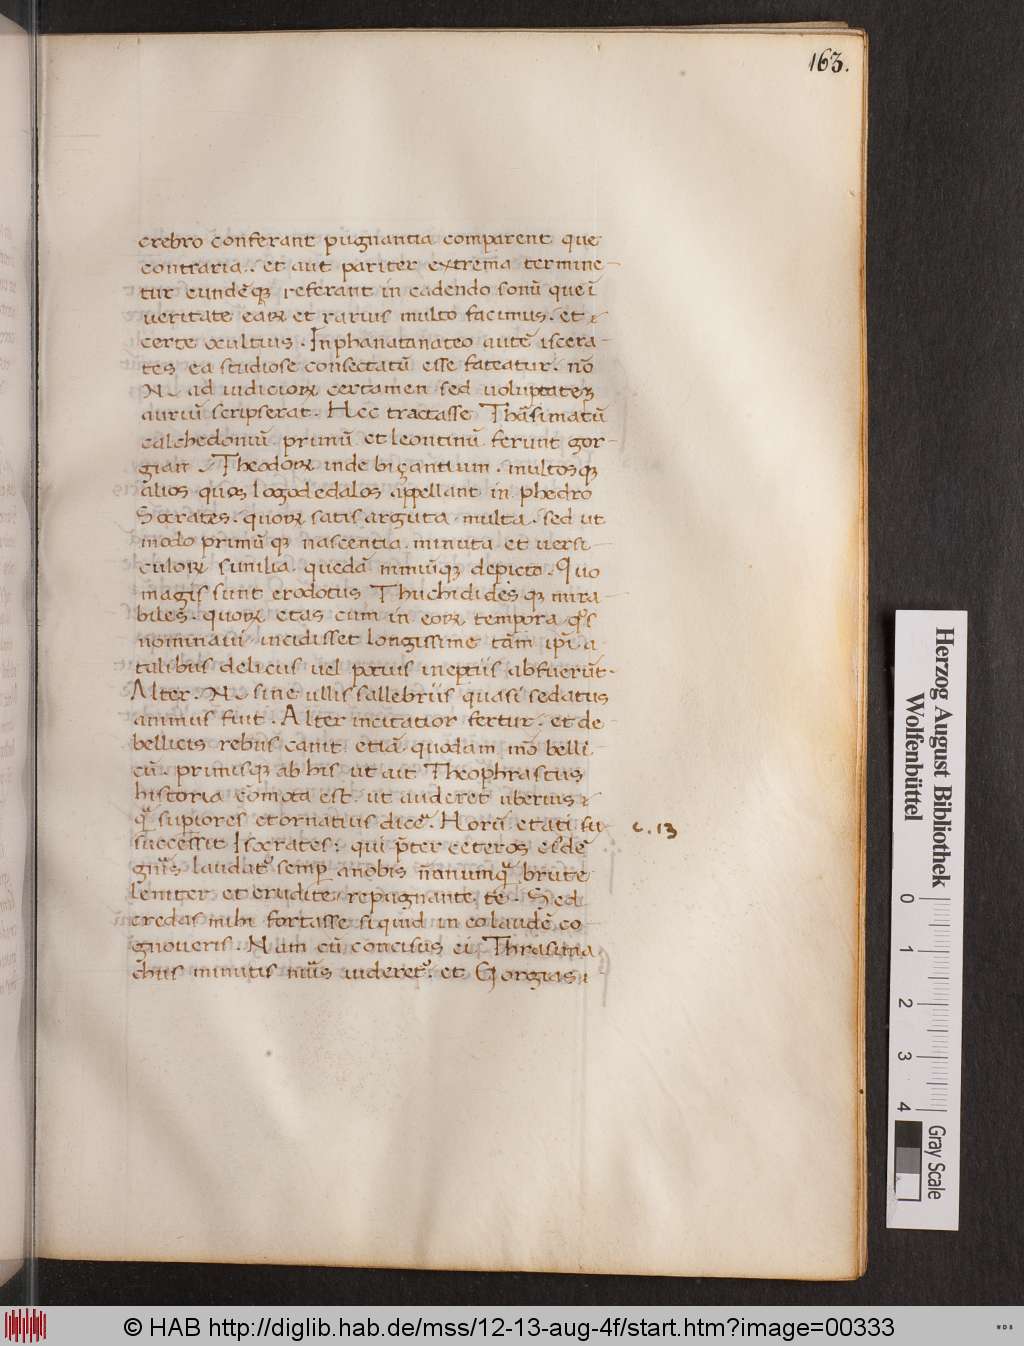 163.
crebro conferant pugnantia comparent que
contraria.. et aut pariter extrema termine-
tur eundēqꝫ referant in cadendo sonū que ī
ueritate eaꝝ et rarius multo facimus. et
certe ocultius. In phanatanateo autē iscera-
tes ea studiose consectatū esse fateatur. nō
N. ad iudicioꝝ certamen sed uoluptateꝫ
auriū scripserat. Hec tractasse Thāsimatū
calchedoniū primū et leontinū ferunt gor-
gian. Theodoꝝ inde biçantium. multosqꝫ
alios quos logodedalos appellant in phedro
Socrates. quoꝝ satis arguta multa. sed ut
modo primū qꝫ nascentia. minuta et uersi-
culoꝝ similia. quedā nimiūqꝫ depicto. Quo
magis sunt erodotus Thuchidides qꝫ mira
biles. quoꝝ etas cum in eoꝝ tempora qͦs
nominaui incidisset longissime tām ip̄i a
talibus delicus uel potius ineptiis abfuerūt.
Alter. N. sine ullis sallebriis quasi sedatus
amnnus fiut. Alter incitatior fertur. et de
bellicis rebus canit etiā quodam mō belli
cū. primisqꝫ ab his ut ait Theophrastus
historia comota est. ut auderet uberius
qͣ supiores et ornatius dicer̄. Horū etati su
successit Isocrates: qui p̄ter ceteros eiˢdē
gn̄is laudatᷣ semp̱ anobis n̄onunqͣ brute
leniter et erudite repugnante te. Sed
credas mihi fortasse siquid in eo laudē co-
gnoueris. Nam cū concisus ei Thrasima
chus minutis nūis uideretᷣ. et Gorgias
c. 13
Herzog August Bibliothek
Wolfenbüttel
0 1 2 3 4
Gray Scale
© HAB http://diglib.hab.de/mss/12-13-aug-4f/start.htm?image=00333